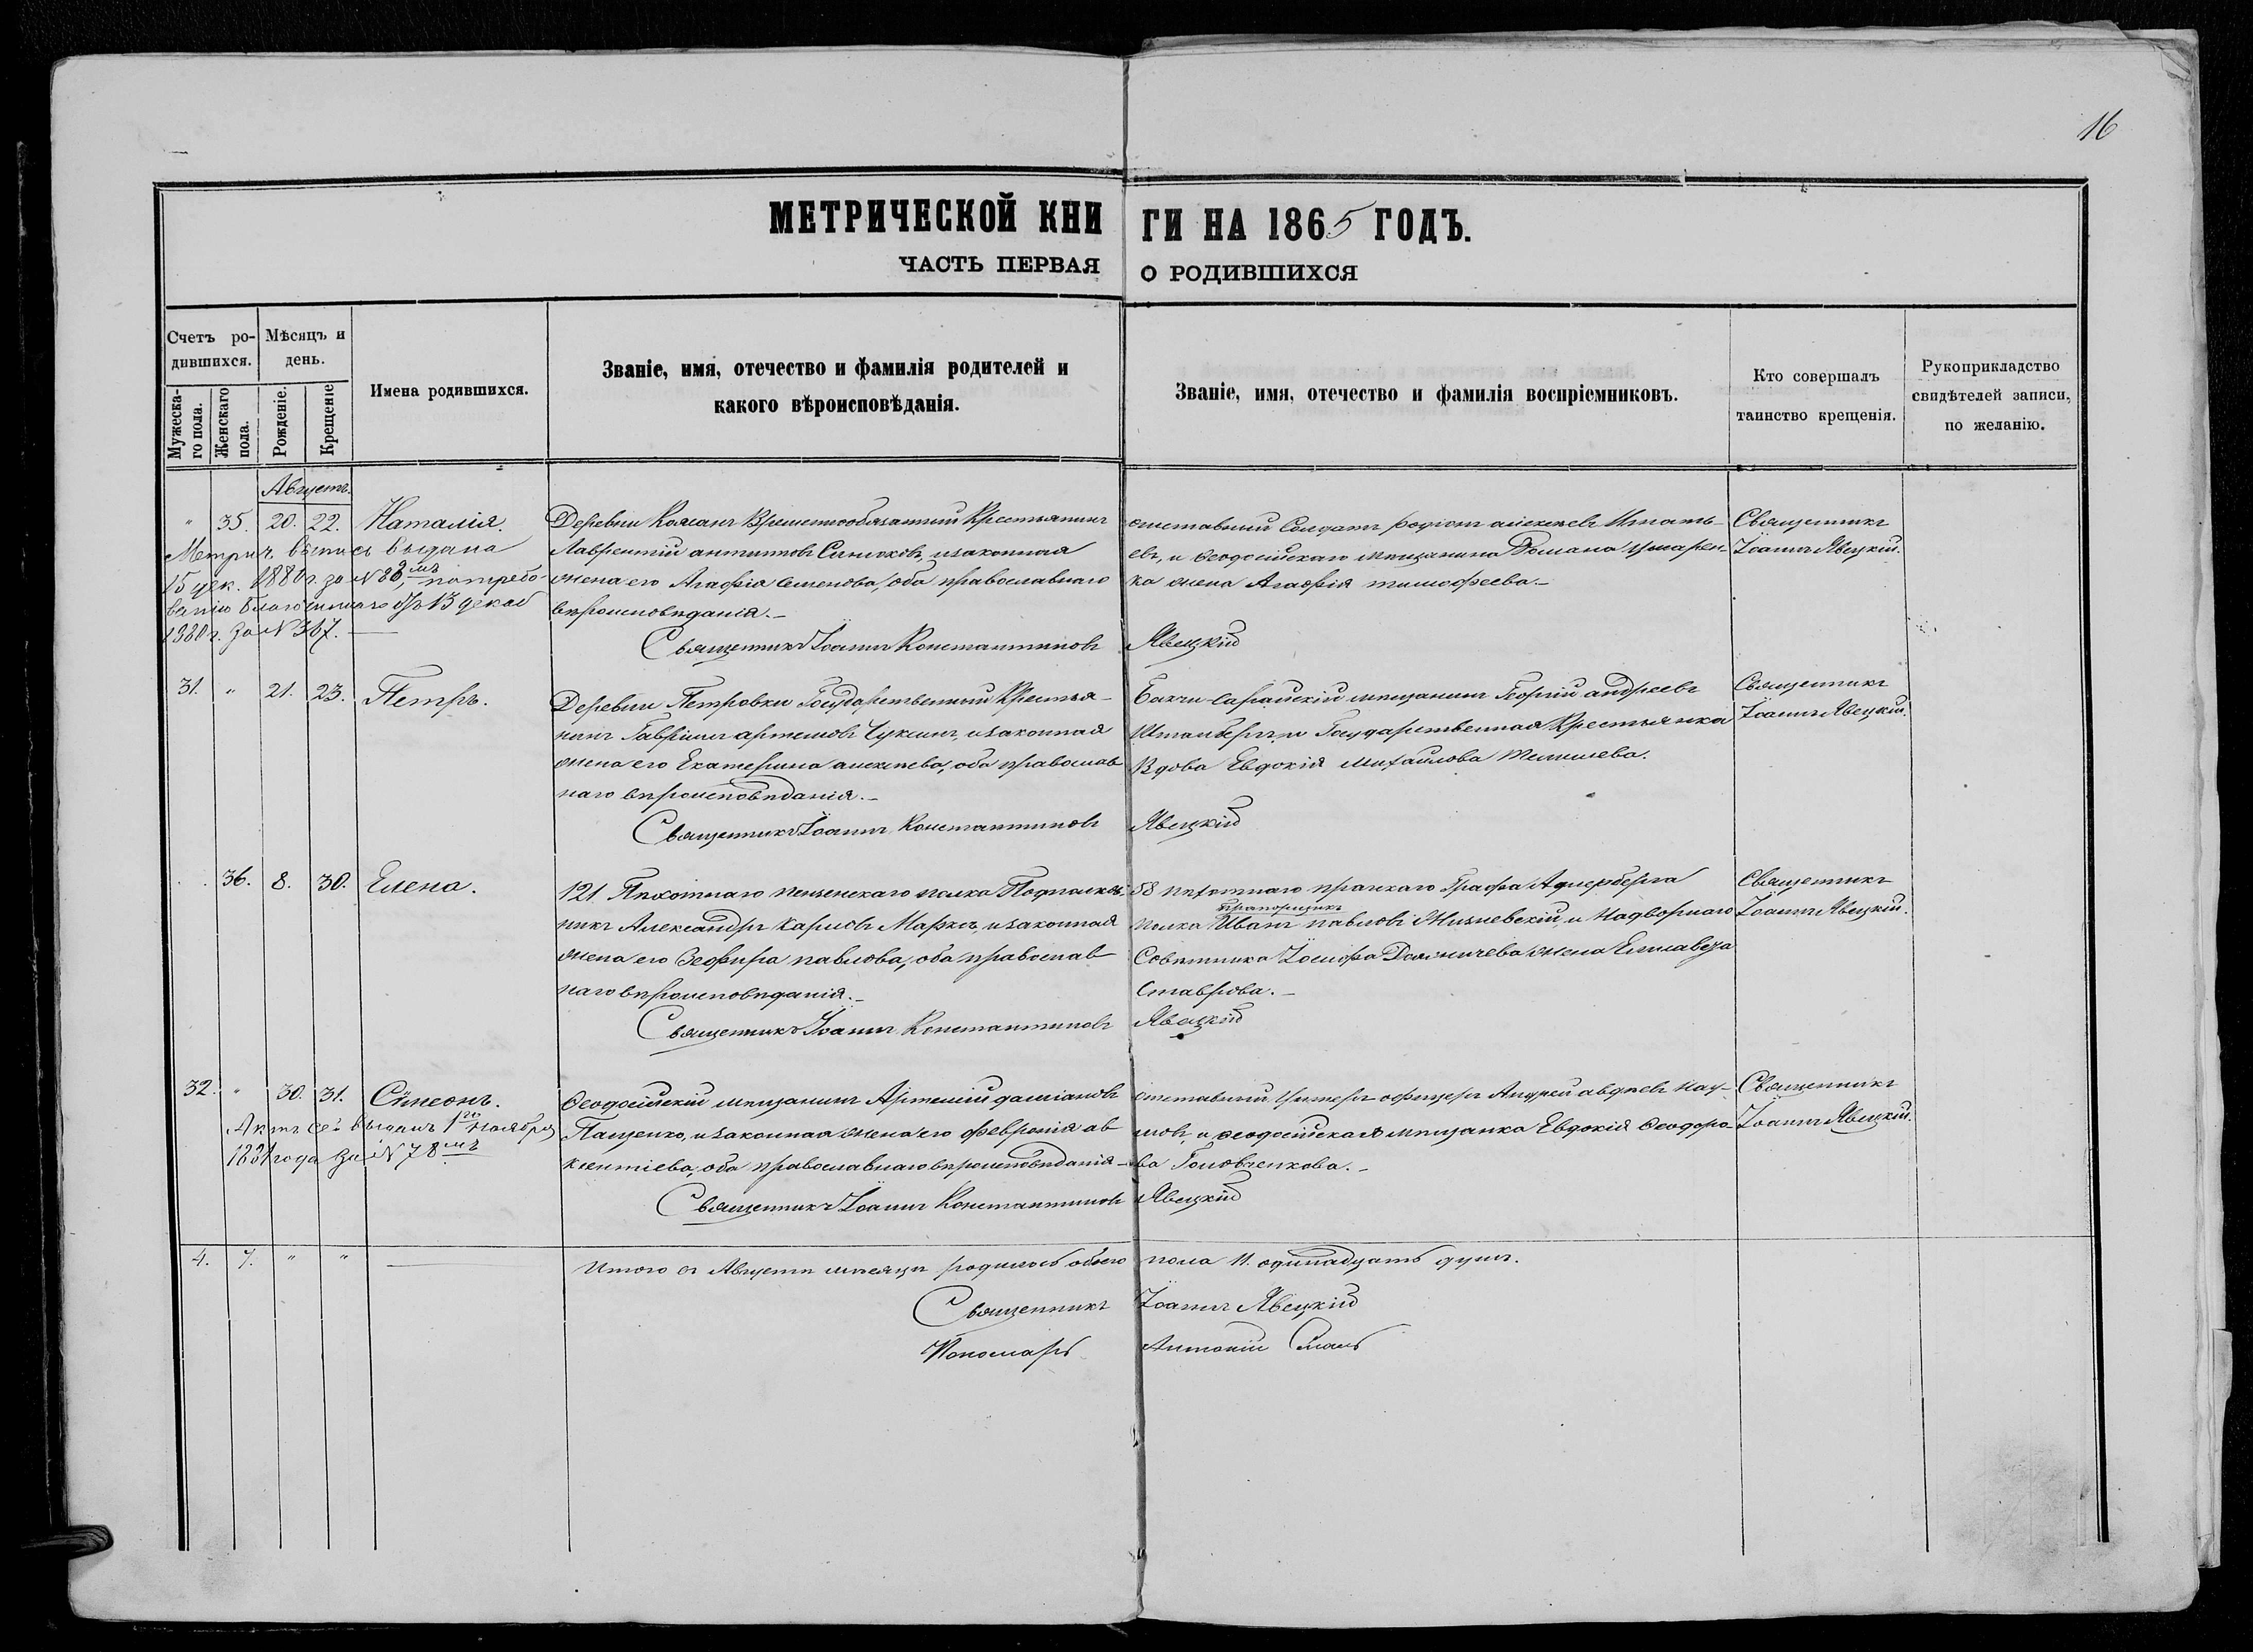 16
МЕТРИЧЕСКОЙ КНИ ГИ НА 1865 ГОДЪ.
ЧАСТЬ ПЕРВАЯ О РОДИВШИХСЯ
Счетъ ро-
дившихся.
Мужеска-
го пола.
Женскаго
пола.
Мѣсяцъ и
день.
Рожденіе.
Крещеніе
Имена родившихся.
Званіе, имя, отечество и фамилія родителей и
какого вѣроисповѣданія.
Званіе, имя, отечество и фамилія воспріемниковъ.
Кто совершалъ
таинство крещенія.
Рукоприкладство
свидѣтелей записи,
по желанію.
Августъ.
" 35. 20. 22. Наталія.
Метрич. выпись выдана
15 дек. 1880 г. за № 83, по требо-
ванію благочиннаго отъ 13 декаб
1880 г. за № 367.
Деревни Кожанъ Временнообязанный Крестьянинъ
Лаврентій антиповъ Синюковъ, и законная
жена его Агафія Семенова, оба православнаго
вѣроисповѣданія.
Священникъ Іоаннъ Константиновъ Явецкій
отставный Солдатъ родіонъ алексѣевъ Игнать-
евъ, и Ѳеодосійскаго мѣщанина Романа
ка жена Агафія тимофеева.
Священникъ
Іоаннъ Явецкій.
31. " 21. 23. Петръ.
Деревни Петровки Государственный Крестья-
нинъ Гавріилъ артемовъ Чукинъ, и законная
жена его Екатерина алексѣева, оба православ
наго вѣроисповѣданія.
Священникъ Іоаннъ Константиновъ Явецкій
Бахчи-сарайскій мѣщанинъ Георгій андреевъ
Штамбергъ, и Государственная Крестьянка
Вдова Евдокія михайлова
Священникъ
Іоаннъ Явецкій.
36. 8. 30. Елена.
121 Пѣхотнаго пензенскаго полка Подполков-
никъ Александръ Карловъ Марксъ, и законная
жена его Зефира павлова, оба православ
наго вѣроисповѣданія.
Священникъ Іоаннъ Константиновъ Явецкій
58 пѣхотнаго пражскаго Графа Адлерберга
прапорщикъ
полка Иванъ павловъ и Надворнаго
Совѣтника Іосифа жена Елисавета
Ставрова.
Священникъ
Іоаннъ Явецкій.
32. " 30. 31. Сѵмеонъ.
Актъ сей выданъ 1го Ноября
1881 года за № 78мъ
Ѳеодосійскій мѣщанинъ Артемій даміановъ
Пащенко, и законная жена его Февронія ав
ксентіева, оба православнаго вѣроисповѣданія
Священникъ Іоаннъ Константиновъ Явецкій
отставный унтеръ офицеръ Андрей авдѣевъ Нау-
мовъ, и Ѳеодосійская мѣщанка Евдокія Ѳеодоро-
ва Головченкова.
Священникъ
Іоаннъ Явецкій.
4. 7. " "
Итого въ Августѣ мѣсяцѣ родилось обоего пола 11. одинадцать душъ.
Священникъ Іоаннъ Явецкій
Пономарь Антоній